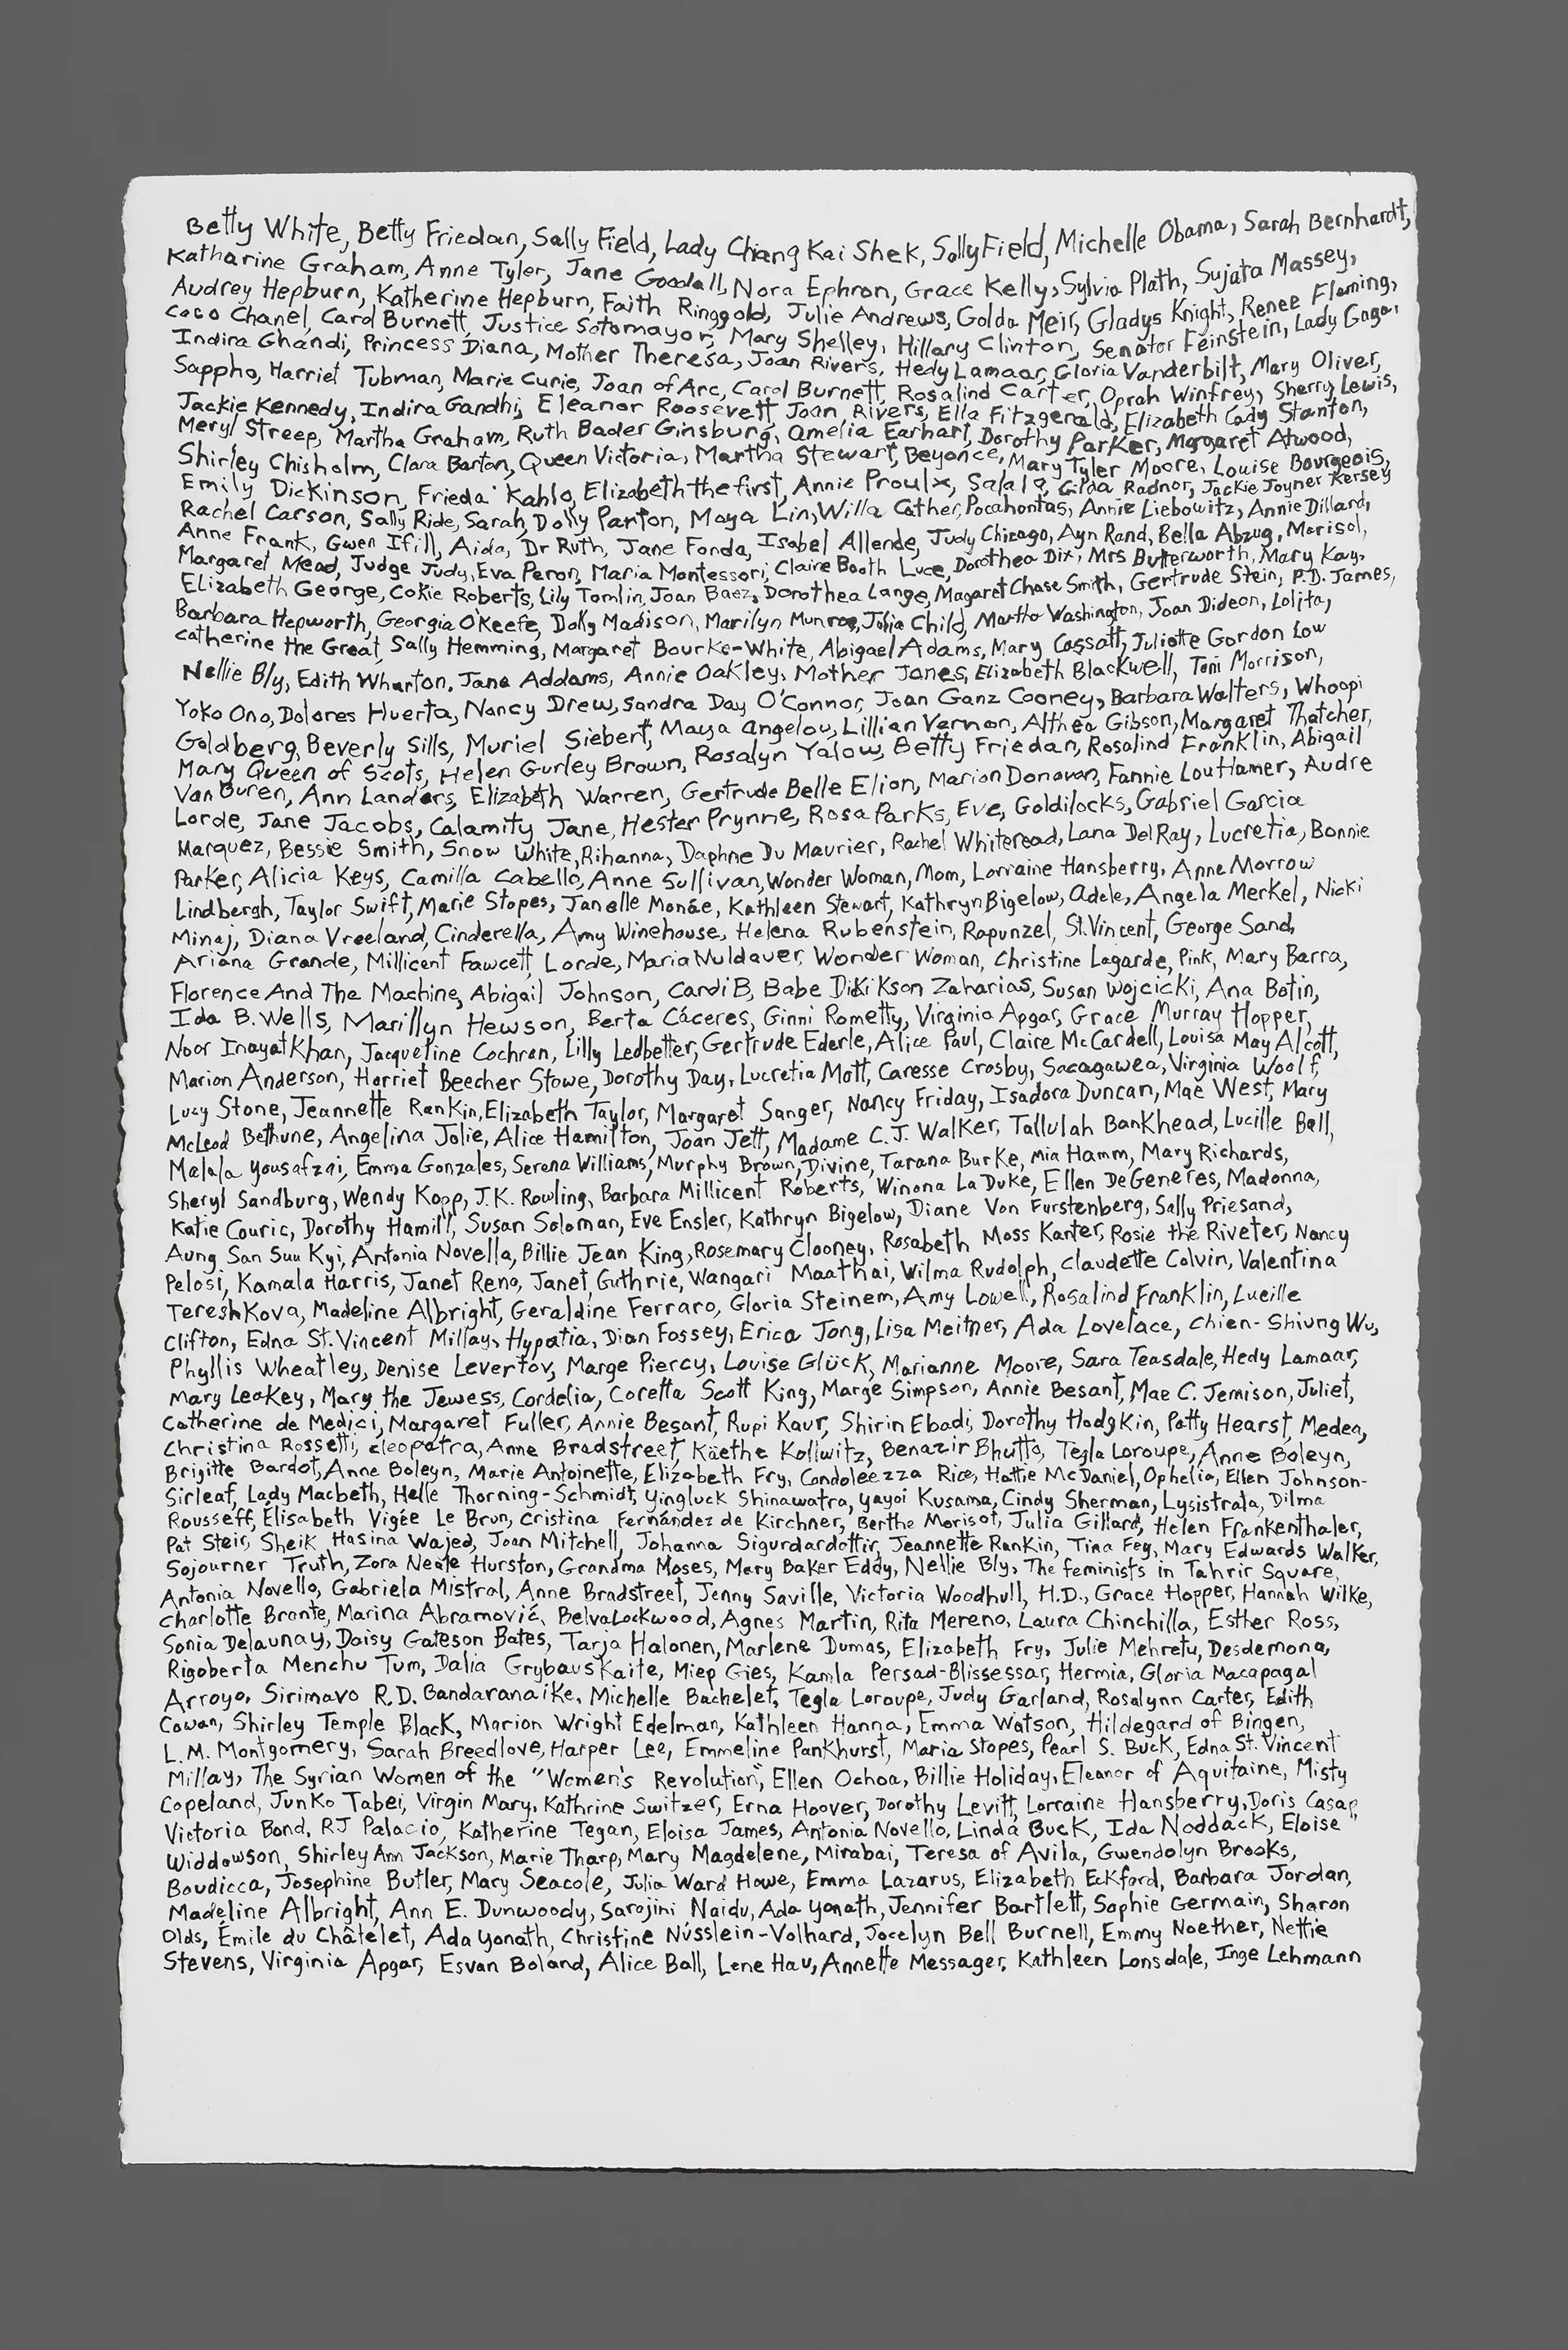 Betty White, Betty Friedan, Sally Field, Lady Chiang Kai Shek, Sally Field, Michelle Obama, Sarah Bernhardt,
Katharine Graham, Anne Tyler, Jane Goodall, Nora Ephron, Grace Kelly, Sylvia Plath, Sujata Massey,
Audrey Hepburn, Katherine Hepburn, Faith Ringgold, Julie Andrews, Golda Meir, Gladys Knight, Renee Fleming,
Coco Chanel, Carol Burnett, Justice Sotomayor, Mary Shelley, Hillary Clinton, Senator Feinstein, Lady Gaga,
Indira Ghandi, Princess Diana, Mother Theresa, Joan Rivers, Hedy Lamaar, Gloria Vanderbilt, Mary Oliver,
Sappho, Harriet Tubman, Marie Curie, Joan of Arc, Carol Burnett, Rosalind Carter, Oprah Winfrey, Sherry Lewis,
Jackie Kennedy, Indira Gandhi, Eleanor Roosevett, Joan Rivers, Ella Fitzgerald, Elizabeth Cady Stanton,
Meryl Streep, Martha Graham, Ruth Bader Ginsburg, Amelia Earhart, Dorothy Parker, Margaret Atwood,
Shirley Chisholm, Clara Barton, Queen Victoria, Martha Stewart, Beyonce, Mary Tyler Moore, Louise Bourgeois,
Emily Dickinson, Frieda Kahlo, Elizabeth the first, Annie Proulx, Salala, Gilda Radnor, Jackie Joyner Kersey
Rachel Carson, Sally Ride, Sarah, Dolly Parton, Maya Lin, Willa Cather, Pocahontas, Annie Liebowitz, Annie Dillard,
Anne Frank, Gwen Ifill, Aida, Dr Ruth, Jane Fonda, Isabel Allende, Judy Chicago, Ayn Rand, Bella Abzug, Marisol,
Margaret Mead, Judge Judy, Eva Peron, Maria Montessori, Claire Booth Luce, Dorothea Dix, Mrs Butterworth, Mary Kay,
Elizabeth George, Cokie Roberts, Lily Tomlin, Joan Baez, Dorothea Lange, Magaret Chase Smith, Gertrude Stein, P.D. James,
Barbara Hepworth, Georgia O'Keefe, Dolly Madison, Marilyn Munroe, Julia Child, Martha Washington, Joan Dideon, Lolita,
Catherine the Great, Sally Hemming, Margaret Bourke-White, Abigael Adams, Mary Cassatt, Juliette Gordon Low
Nellie Bly, Edith Wharton, Jane Addams, Annie Oakley, Mother Jones, Elizabeth Blackwell, Toni Morrison,
Yoko Ono, Dolores Huerta, Nancy Drew, Sandra Day O'Connor, Joan Ganz Cooney, Barbara Walters, Whoopi
Goldberg, Beverly Sills, Muriel Siebert, Maya Angelou, Lillian Vernon, Althea Gibson, Margaret Thatcher,
Mary Queen of Scots, Helen Gurley Brown, Rosalyn Yalow, Betty Friedan, Rosalind Franklin, Abigail
Van Buren, Ann Landers, Elizabeth Warren, Gertrude Belle Elion, Marion Donovan, Fannie Lou Hamer, Audre
Lorde, Jane Jacobs, Calamity Jane, Hester Prynne, Rosa Parks, Eve, Goldilocks, Gabriel Garcia
Marquez, Bessie Smith, Snow White, Rihanna, Daphne Du Maurier, Rachel Whiteread, Lana Del Ray, Lucretia, Bonnie
Parker, Alicia Keys, Camilla Cabello, Anne Sullivan, Wonder Woman, Mom, Lorraine Hansberry, Anne Morrow
Lindbergh, Taylor Swift, Marie Stopes, Janelle Monáe, Kathleen Stewart, Kathryn Bigelow, Adele, Angela Merkel, Nicki
Minaj, Diana Vreeland, Cinderella, Amy Winehouse, Helena Rubenstein, Rapunzel, St. Vincent, George Sand,
Ariana Grande, Millicent Fawcett, Lorde, Maria Muldauer, Wonder Woman, Christine Lagarde, Pink, Mary Barra,
Florence And The Machine, Abigail Johnson, Cardi B, Babe Didi Kikson Zaharias, Susan Wojcicki, Ana Botin,
Ida B. Wells, Marillyn Hewson, Berta Cáceres, Ginni Rometty, Virginia Apgar, Grace Murray Hopper,
Noor Inayat Khan, Jacqueline Cochran, Lilly Ledbetter, Gertrude Ederle, Alice Paul, Claire McCardell, Louisa May Alcott,
Marion Anderson, Harriet Beecher Stowe, Dorothy Day, Lucretia Mott, Caresse Crosby, Sacagawea, Virginia Woolf,
Lucy Stone, Jeannette Rankin, Elizabeth Taylor, Margaret Sanger, Nancy Friday, Isadora Duncan, Mae West, Mary
McLeod Bethune, Angelina Jolie, Alice Hamilton, Joan Jett, Madame C.J. Walker, Tallulah Bankhead, Lucille Ball,
Malala Yousafzai, Emma Gonzales, Serena Williams, Murphy Brown, Divine, Tarana Burke, Mia Hamm, Mary Richards,
Sheryl Sandburg, Wendy Kopp, J.K. Rowling, Barbara Millicent Roberts, Winona LaDuke, Ellen DeGeneres, Madonna,
Katie Couric, Dorothy Hamill, Susan Soloman, Eve Ensler, Kathryn Bigelow, Diane Von Furstenberg, Sally Priesand,
Aung San Suu Kyi, Antonia Novella, Billie Jean King, Rosemary Clooney, Rosabeth Moss Kanter, Rosie the Riveter, Nancy
Pelosi, Kamala Harris, Janet Reno, Janet Guthrie, Wangari Maathai, Wilma Rudolph, Claudette Colvin, Valentina
Tereshkova, Madeline Albright, Geraldine Ferraro, Gloria Steinem, Amy Lowell, Rosalind Franklin, Lucille
Clifton, Edna St. Vincent Millay, Hypatia, Dian Fossey, Erica Jong, Lisa Meitner, Ada Lovelace, Chien-Shiung Wu,
Phyllis Wheatley, Denise Levertov, Marge Piercy, Louise Glück, Marianne Moore, Sara Teasdale, Hedy Lamaar,
Mary Leakey, Mary the Jewess, Cordelia, Coretta Scott King, Marge Simpson, Annie Besant, Mae C. Jemison, Juliet,
Catherine de Medici, Margaret Fuller, Annie Besant, Rupi Kaur, Shirin Ebadi, Dorothy Hodgkin, Patty Hearst, Medea,
Christina Rossetti, Cleopatra, Anne Bradstreet, Käethe Kollwitz, Benazir Bhutto, Tegla Loroupe, Anne Boleyn,
Brigitte Bardot, Anne Boleyn, Marie Antoinette, Elizabeth Fry, Condoleezza Rice, Hattie McDaniel, Ophelia, Ellen Johnson-
Sirleaf, Lady Macbeth, Helle Thorning-Schmidt, Yingluck Shinawatra, Yayoi Kusama, Cindy Sherman, Lysistrata, Dilma
Rousseff, Élisabeth Vigée Le Brun, Cristina Fernández de Kirchner, Berthe Morisot, Julia Gillard, Helen Frankenthaler,
Pat Steir, Sheik Hasina Wajed, Joan Mitchell, Johanna Sigurdardottir, Jeannette Rankin, Tina Fey, Mary Edwards Walker,
Sojourner Truth, Zora Neale Hurston, Grandma Moses, Mary Baker Eddy, Nellie Bly, The feminists in Tahrir Square,
Antonia Novello, Gabriela Mistral, Anne Bradstreet, Jenny Saville, Victoria Woodhull, H.D., Grace Hopper, Hannah Wilke,
Charlotte Bronte, Marina Abramović, Belva Lockwood, Agnes Martin, Rita Mereno, Laura Chinchilla, Esther Ross,
Sonia Delaunay, Daisy Gateson Bates, Tarja Halonen, Marlene Dumas, Elizabeth Fry, Julie Mehretu, Desdemona,
Rigoberta Menchu Tum, Dalia Grybauskaite, Miep Gies, Kamla Persad-Blissessar, Hermia, Gloria Macapagal
Arroyo, Sirimavo R.D. Bandaranaike, Michelle Bachelet, Tegla Loroupe, Judy Garland, Rosalynn Carter, Edith
Cowan, Shirley Temple Black, Marion Wright Edelman, Kathleen Hanna, Emma Watson, Hildegard of Bingen,
L.M. Montgomery, Sarah Breedlove, Harper Lee, Emmeline Pankhurst, Maria Stopes, Pearl S. Buck, Edna St. Vincent
Millay, The Syrian Women of the "Women's Revolution", Ellen Ochoa, Billie Holiday, Eleanor of Aquitaine, Misty
Copeland, Junko Tabei, Virgin Mary, Kathrine Switzer, Erna Hoover, Dorothy Levitt, Lorraine Hansberry, Doris Casap
Victoria Bond, RJ Palacio, Katherine Tegan, Eloisa James, Antonia Novello, Linda Buck, Ida Noddack, Eloise
Widdowson, Shirley Ann Jackson, Marie Tharp, Mary Magdelene, Mirabai, Teresa of Avila, Gwendolyn Brooks,
Boudicca, Josephine Butler, Mary Seacole, Julia Ward Howe, Emma Lazarus, Elizabeth Eckford, Barbara Jordan,
Madeline Albright, Ann E. Dunwoody, Sarojini Naidu, Ada Yonath, Jennifer Bartlett, Sophie Germain, Sharon
Olds, Émile du Châtelet, Ada Yonath, Christine Nüsslein-Volhard, Jocelyn Bell Burnell, Emmy Noether, Nettie
Stevens, Virginia Apgar, Esvan Boland, Alice Ball, Lene Hau, Annette Messager, Kathleen Lonsdale, Inge Lehmann